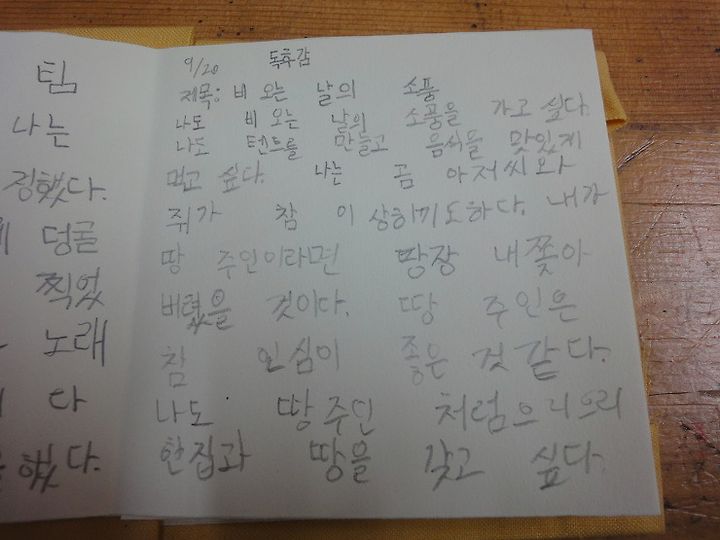 팀
나는
정했다.
덩굴
찍었
노래
다
했다.
9/20 독후감
제목: 비 오는 날의 소풍
나도 비 오는 날의 소풍을 가고 싶다.
나도 텐트를 만들고 음식을 맛있게
먹고 싶다. 나는 곰 아저씨와
쥐가 참 이상하기도하다. 내가
땅 주인이라면 땅장 내쫓아
버렸을 것이다. 땅 주인은
참 인심이 좋은 것 같다.
나도 땅주인 처럼으리으리
한집과 땅을 갖고 싶다.